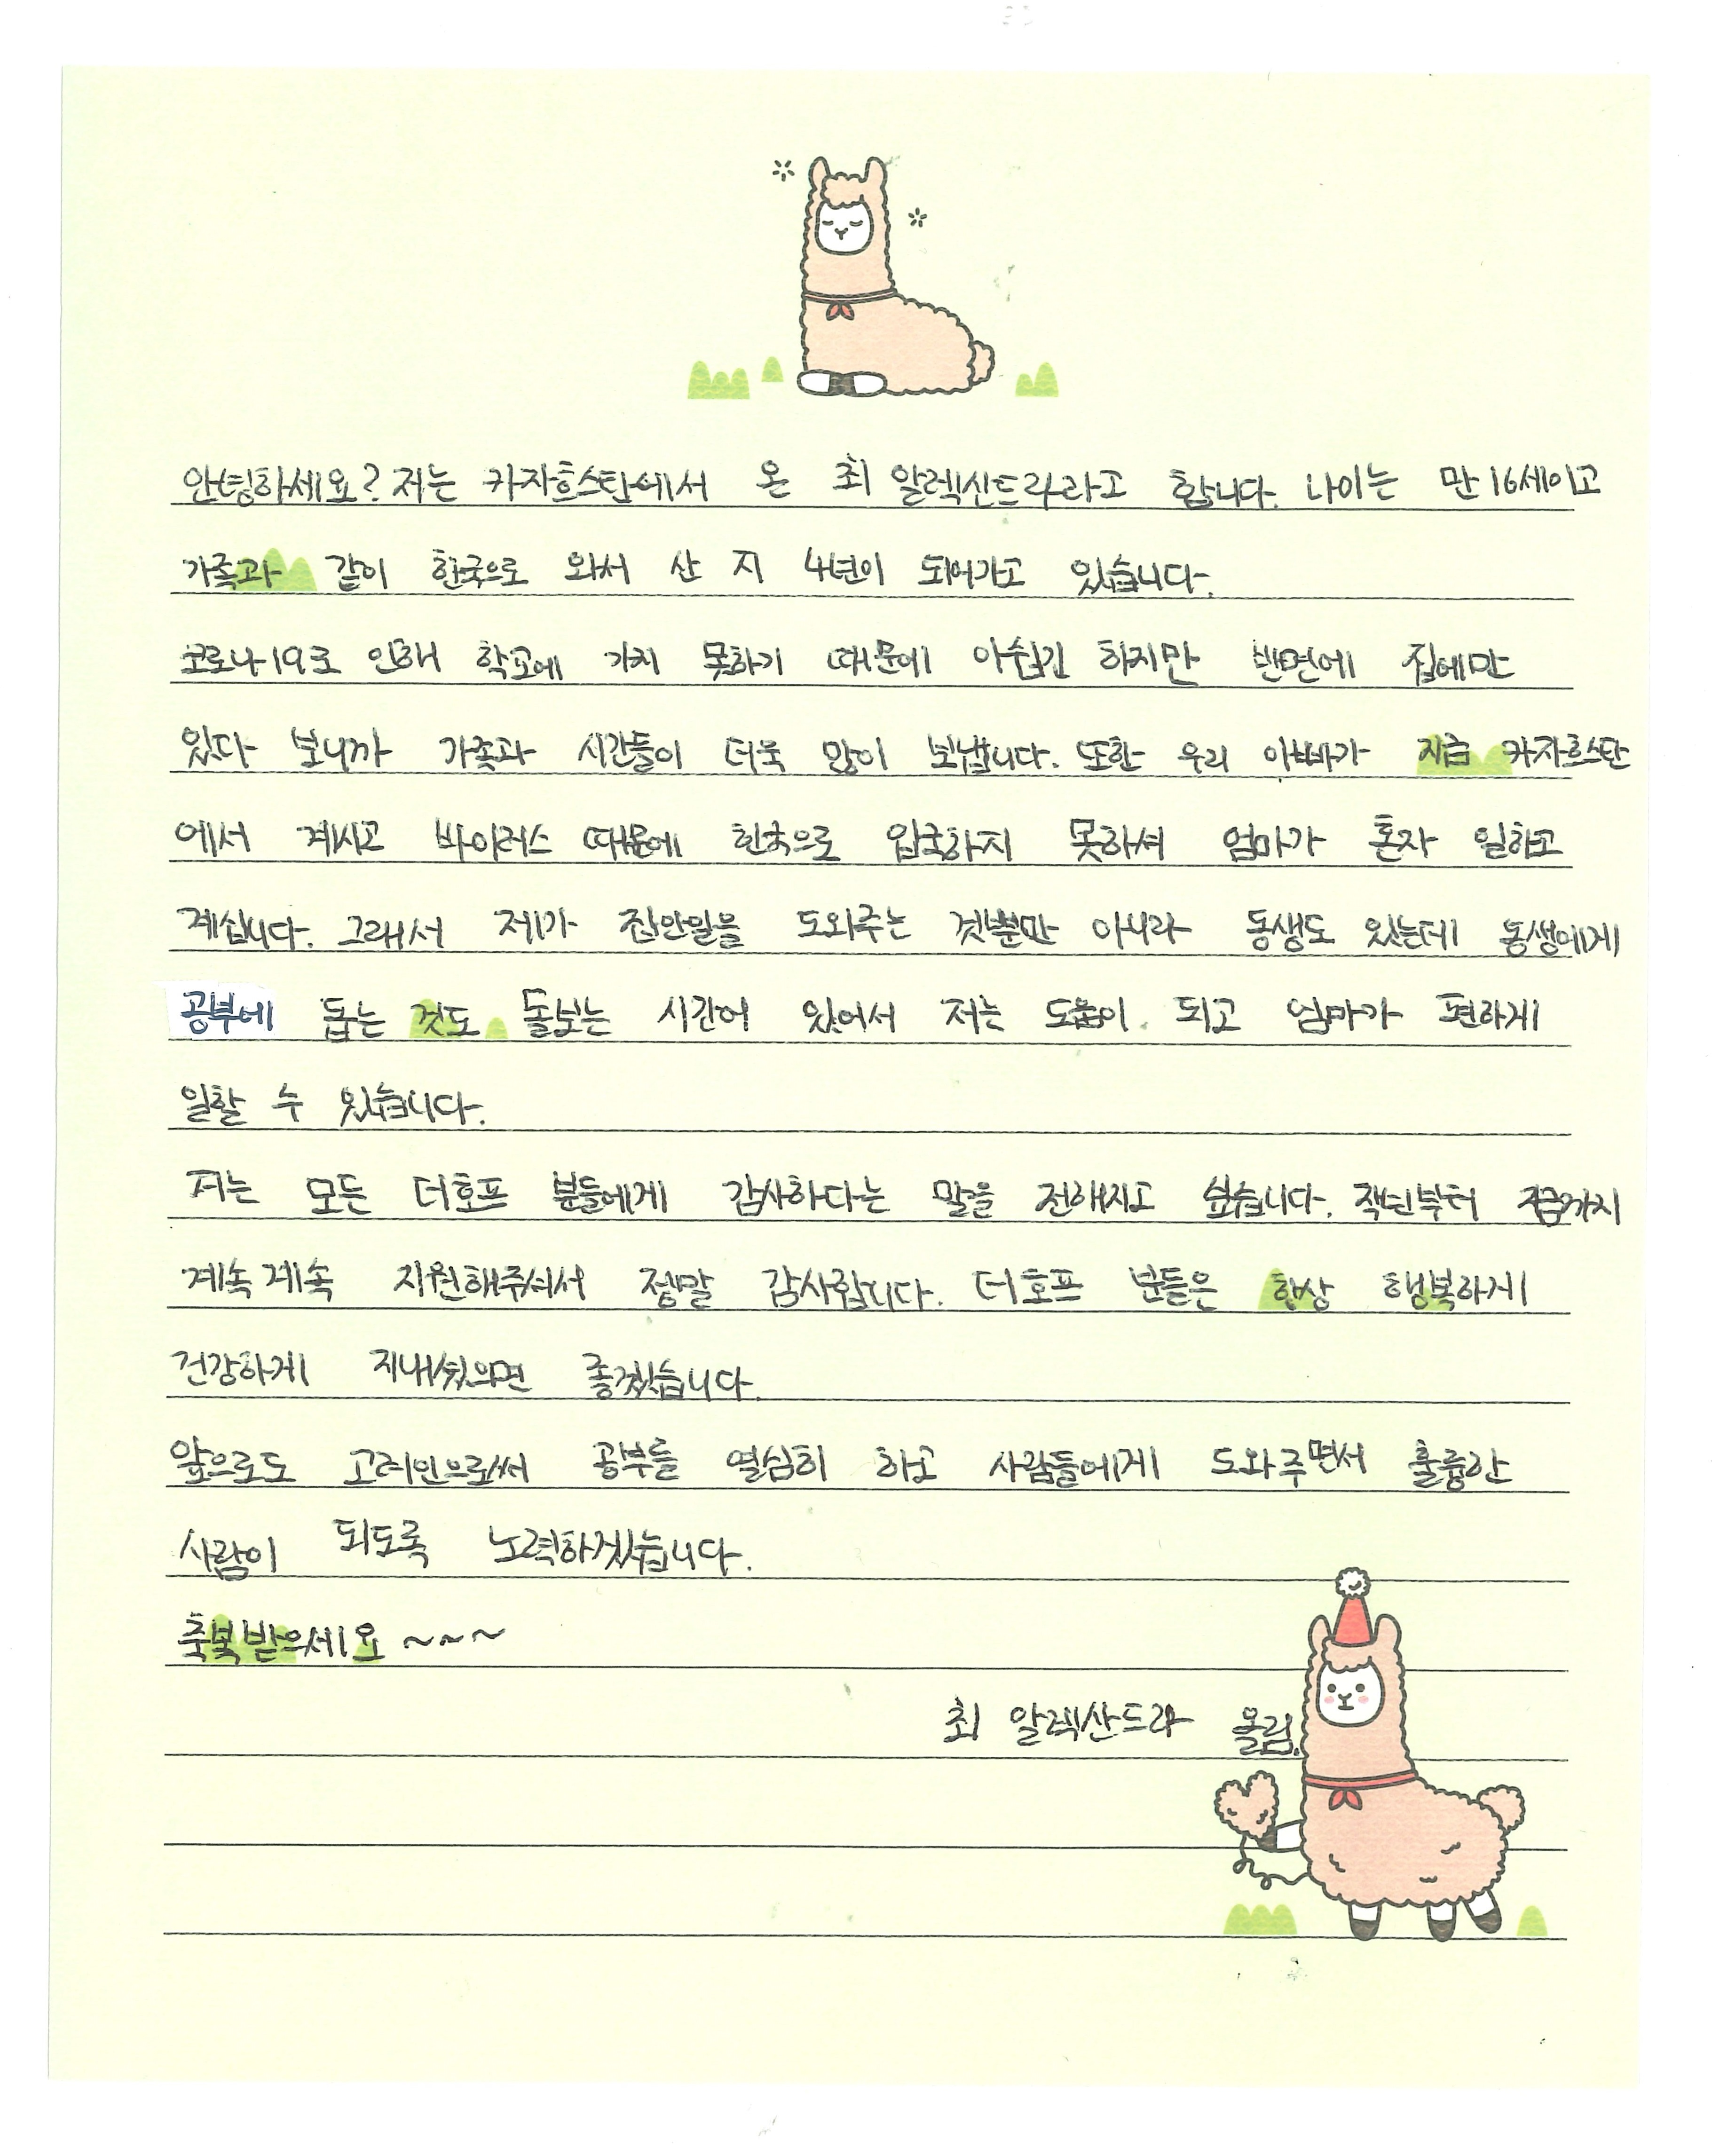 안녕하세요? 저는 카자흐스탄에서 온 최 알렉산드라라고 합니다. 나이는 만 16세이고
가족과 같이 한국으로 와서 산 지 4년이 되어가고 있습니다.
코로나19로 인해 학교에 가지 못하기 때문에 아쉽긴 하지만 반면에 집에만
있다 보니까 가족과 시간들이 더욱 많이 보냅니다. 또한 우리 아빠가 지금 카자흐스탄
에서 계시고 바이러스 때문에 한국으로 입국하지 못하셔 엄마가 혼자 일하고
계십니다. 그래서 제가 집안일을 도와주는 것뿐만 아니라 동생도 있는데 동생에게
공부에 돕는 것도 돌보는 시간이 있어서 저는 도움이 되고 엄마가 편하게
일할 수 있습니다.
저는 모든 더호프 분들에게 감사하다는 말을 전해지고 싶습니다. 작년부터 지금까지
계속계속 지원해주셔서 정말 감사합니다. 더호프 분들은 항상 행복하게
건강하게 지내셨으면 좋겠습니다.
앞으로도 고려인으로써 공부를 열심히 하고 사람들에게 도와주면서 훌륭한
사람이 되도록 노력하겠습니다.
축복받으세요 ~~~
최 알렉산드라 올림.